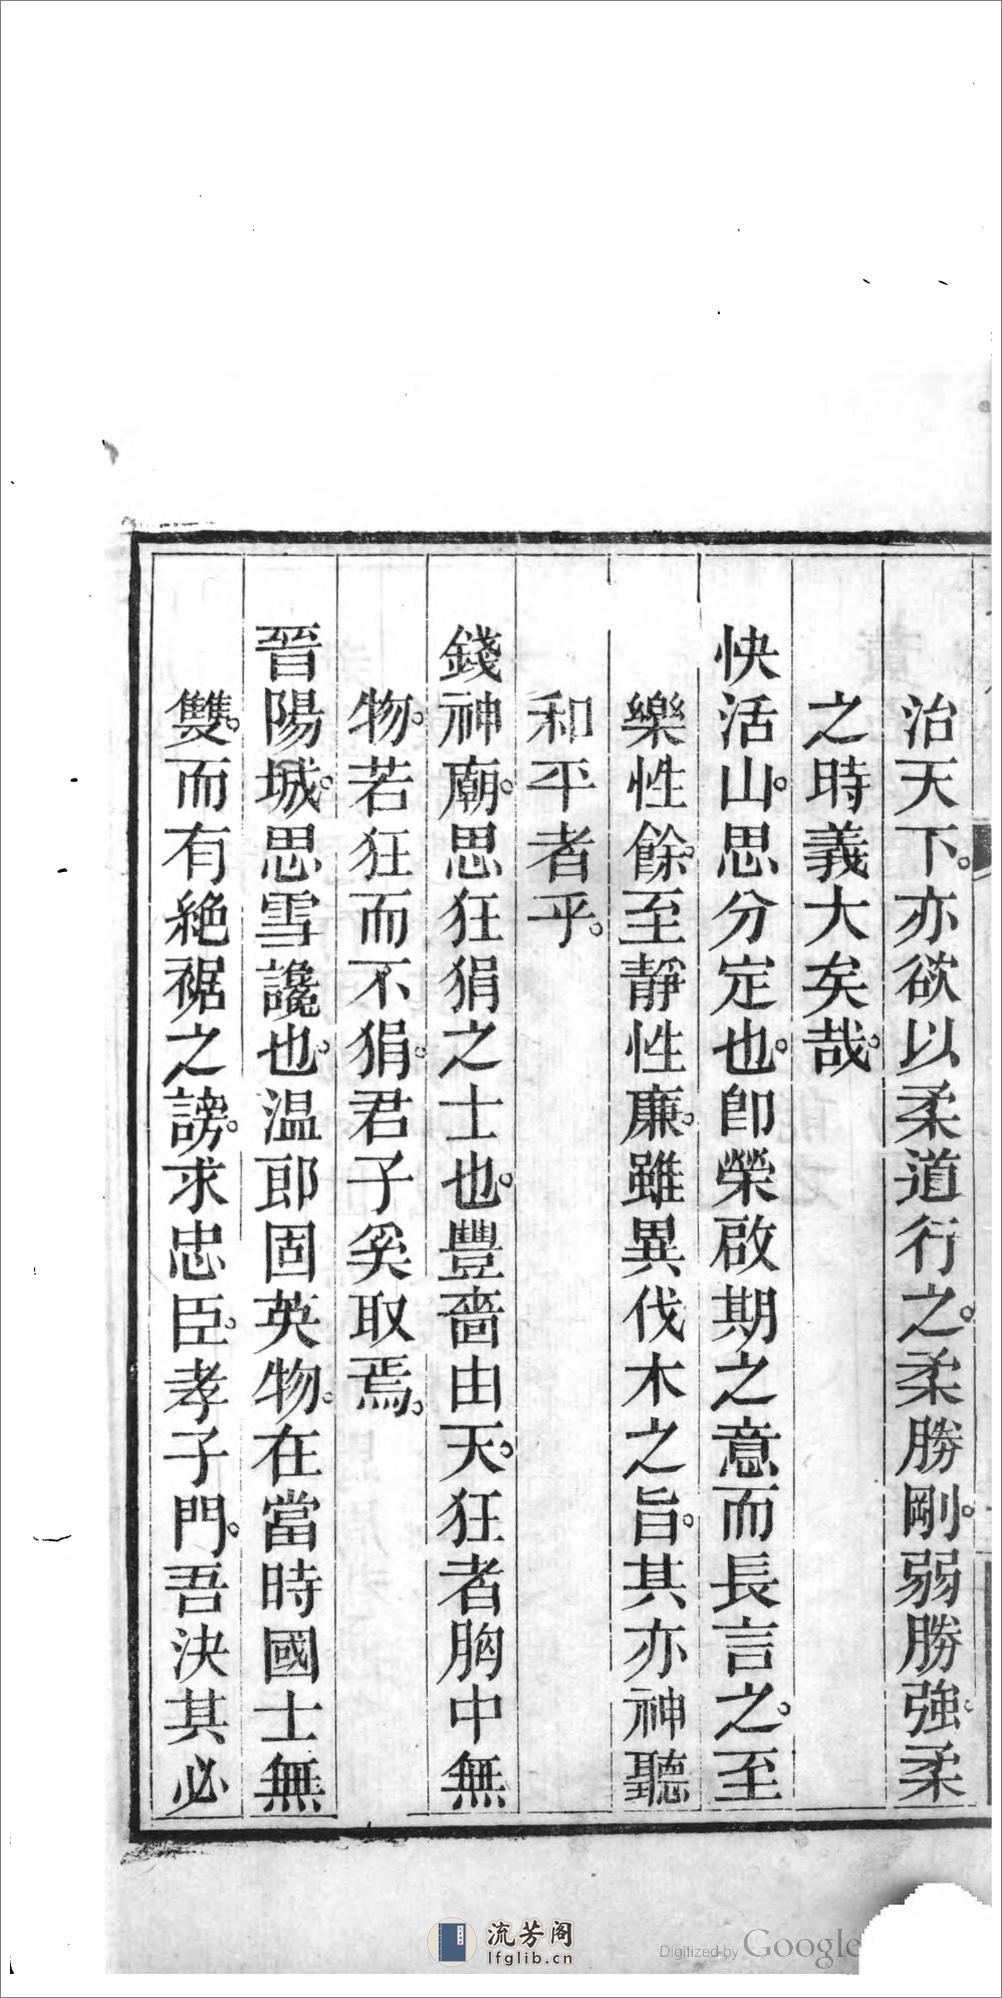 治天下。亦欲以柔道行之。柔勝剛。弱勝強。柔
之時義大矣哉。
快活山。思分定也。卽榮啟期之意而長言之。至
樂性餘。至靜性廉。雖異伐木之旨。其亦神聽
和平者乎。
錢神廟。思狂狷之士也。豐嗇由天。狂者胸中無
物。若狂而不狷。君子奚取焉。
晉陽城。思雪讒也。温郎固英物。在當時國士無
雙。而有絶裾之謗。求忠臣。孝子門。吾決其必
流芳阁
lfglib.cn
Digitized by Google